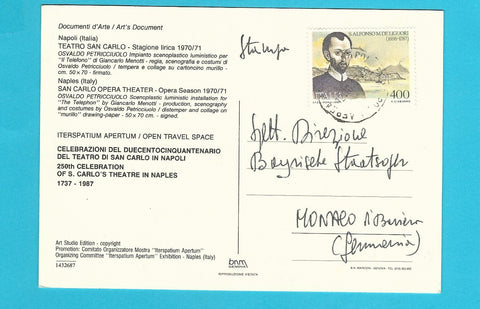 Documenti d'Arte / Art's Document
Napoli (Italia)
TEATRO SAN CARLO - Stagione lirica 1970/71
OSVALDO PETRICCIUOLO Impianto scenoplastico luministico per
"Il Telefono" di Giancarlo Menotti - regia, scenografia e costumi di
Osvaldo Petricciuolo / tempera e collage su cartoncino murillo -
cm. 50 x 70 - firmato.
Naples (Italy)
SAN CARLO OPERA THEATER - Opera Season 1970/71
OSVALDO PETRICCIUOLO Scenoplastic luministic installation for
"The Telephon" by Giancarlo Menotti - production, scenography
and costumes by Osvaldo Petricciuolo / distemper and collage on
"murillo" drawing-paper - 50 x 70 cm. - signed.
ITERSPATIUM APERTUM / OPEN TRAVEL SPACE
CELEBRAZIONI DEL DUECENTOCINQUANTENARIO
DEL TEATRO DI SAN CARLO IN NAPOLI
250th CELEBRATION
OF S. CARLO'S THEATRE IN NAPLES
1737 - 1987
Art Studio Edition - copyright
Promotion: Comitato Organizzatore Mostra "Iterspatium Apertum"
Organizing Committee "Iterspatium Apertum" Exhibition - Naples (Italy)
1433687
bnm
RIPRODUZIONE VIETATA
Stampe
S. ALFONSO M. DE LIGUORI
(1696-1787)
400
Sett. Direzione
Bayrische Staatsoper
MONACO d. Baviera
(Germania)